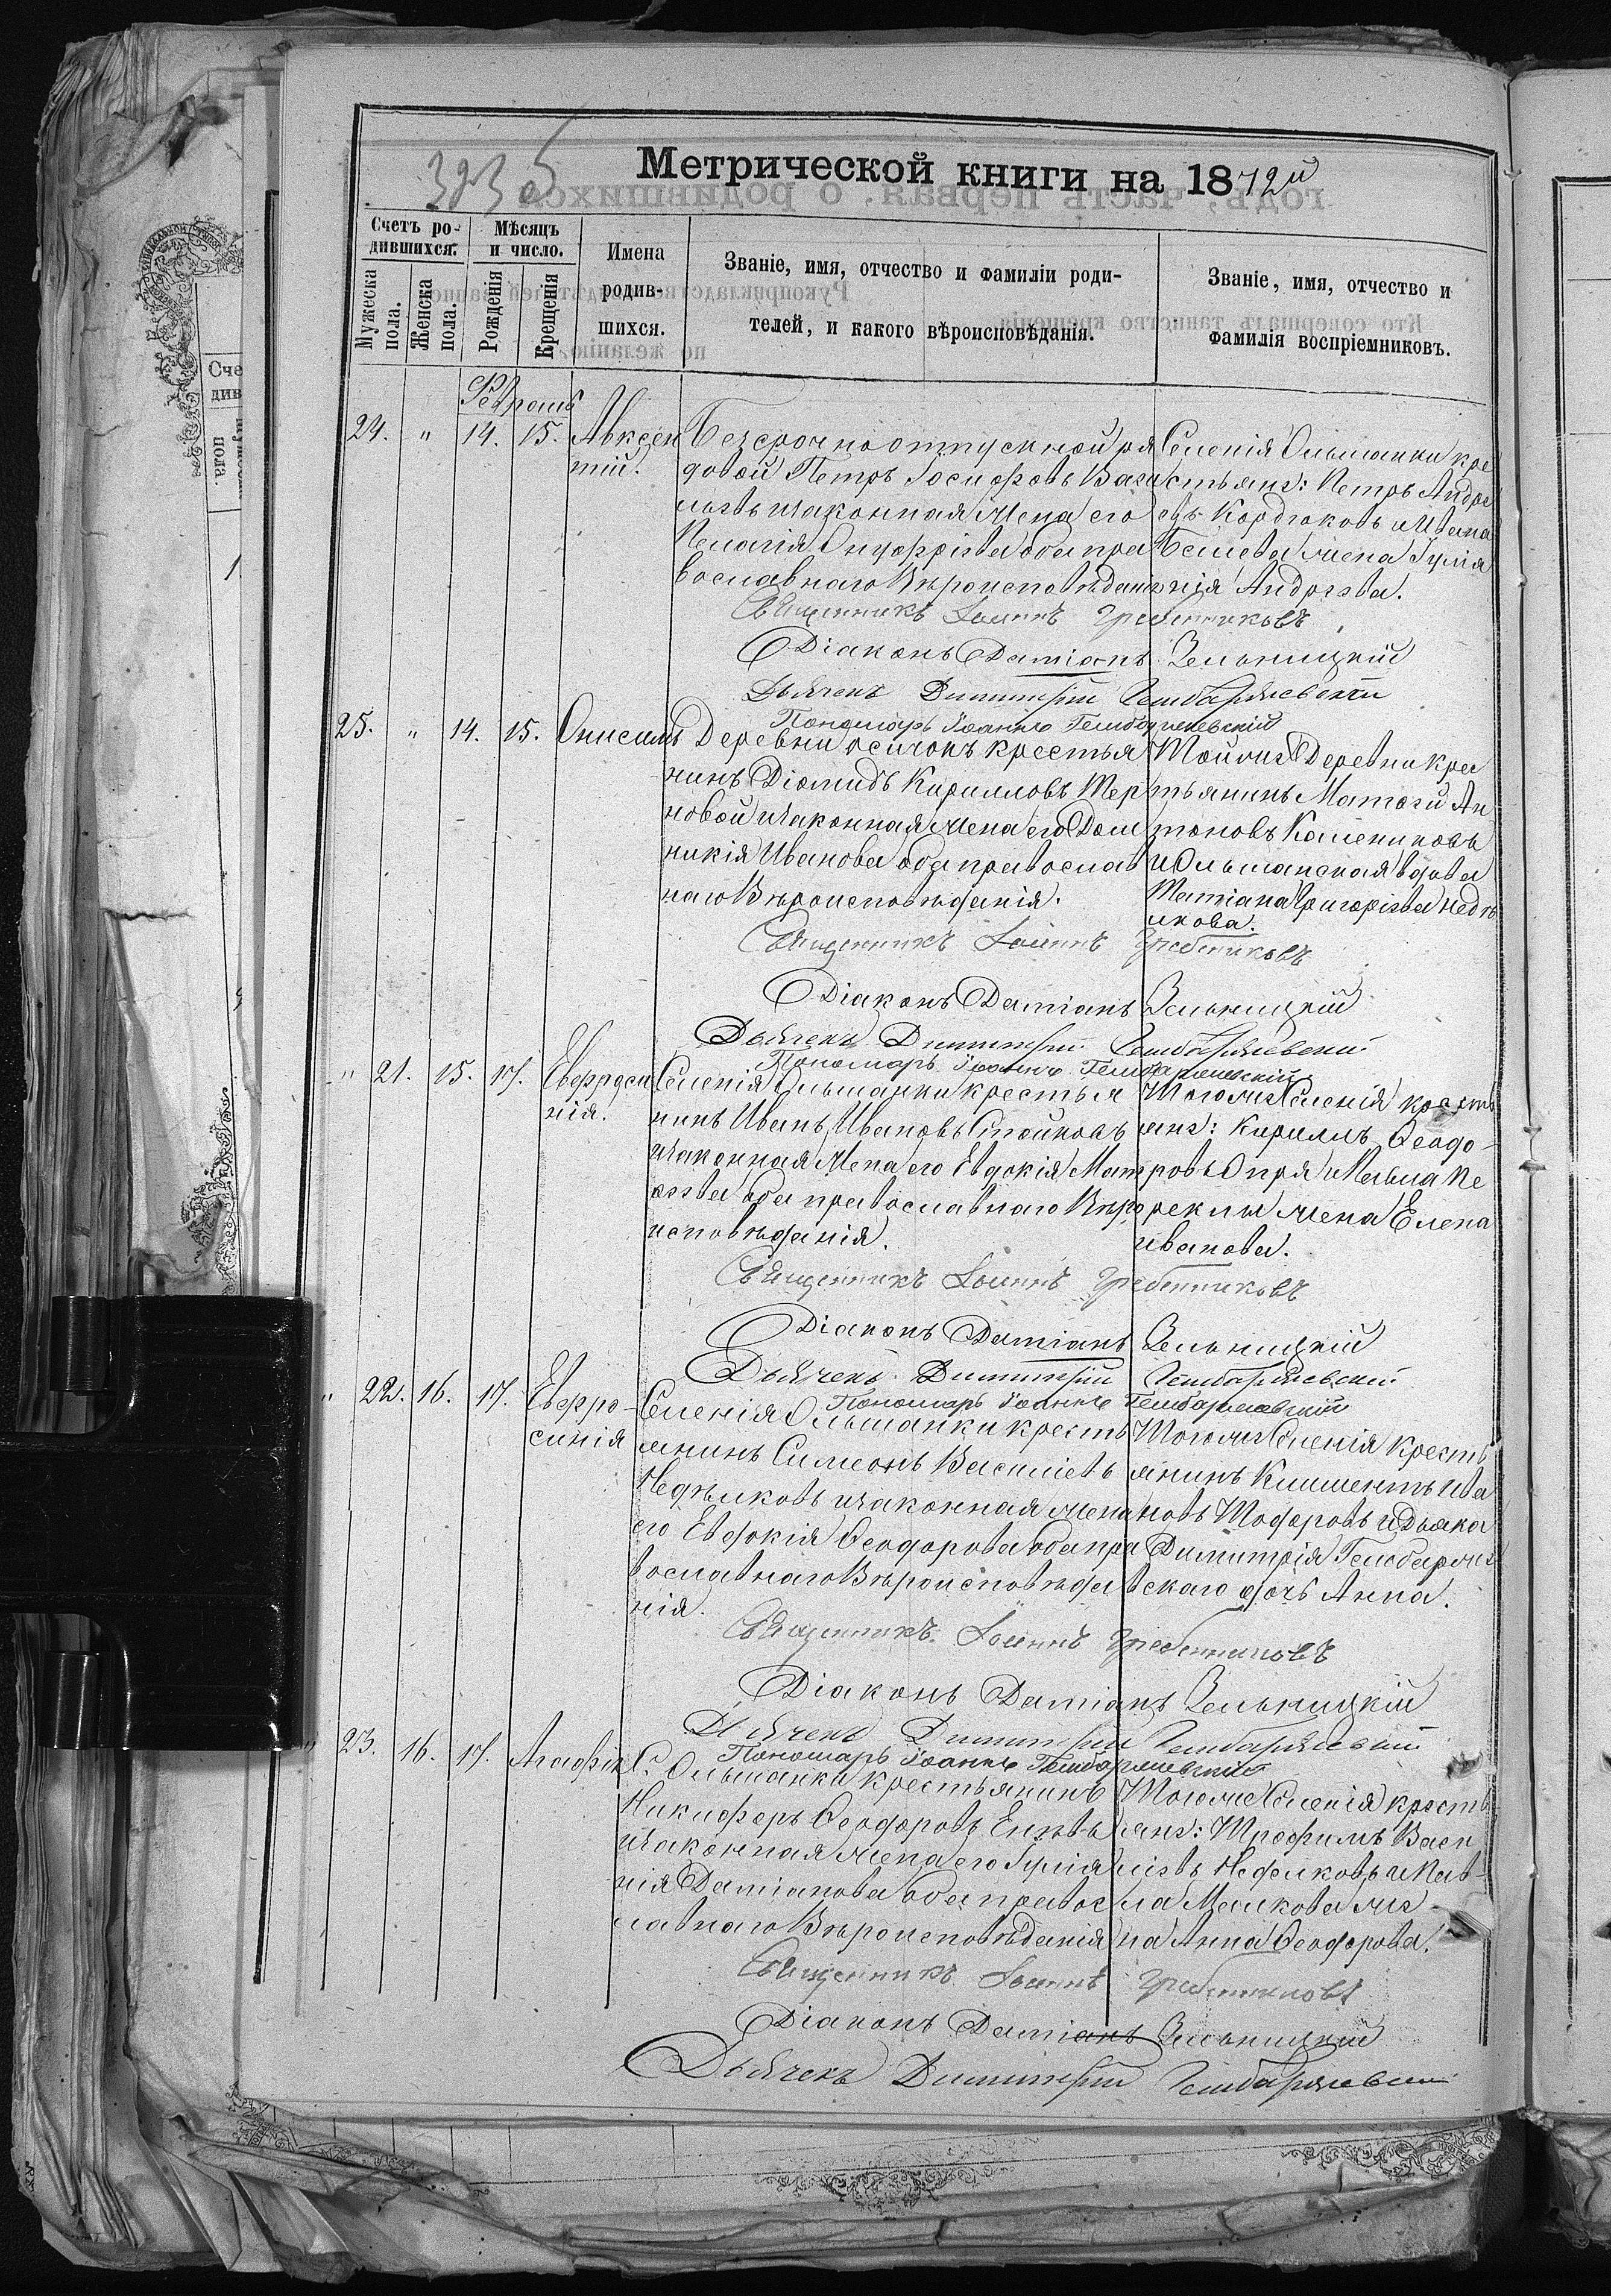 Метрической книги на 1872й
Счетъ родившихся.
Мужеска пола.
Женска пола.
Мѣсяцъ и число.
Рожденія
Крещенія
Имена родившихся.
Званіе, имя, отчество и фамиліи родителей, и какого вѣроисповѣданія.
Званіе, имя, отчество и фамилія воспріемниковъ.
Февраль
24. " 14. 15. Авксентій.
Безсрочноотпускной ря
довой Петръ Іосифовъ
и законная жена его
Пелагія Онуфріева оба пра
вославнаго Вѣроисповѣданія
Селенія Ольшанки кре
стьяне: Петръ Андре
евъ Кордюковъ и Ивана
жена Іулія
нія Андреева.
Священникъ Іоаннъ Гребенниковъ
Діаконъ Даміанъ Зельницкій
Дьячекъ Димитрій
Пономарь Іоаннъ
25. " 14. 15. Онисимъ
Деревни Осичокъ крестья
нинъ Діомидъ Кирилловъ Тер
новой и законная жена его Дом
никія Иванова оба православ
наго Вѣроисповѣданія.
Той же Деревни крес
тьянинъ Матѳей Ан
тоновъ Калениковъ
и Ольшанская вдова
Татіана Григоріева Недѣ
лкова.
Священникъ Іоаннъ Гребенниковъ
Діаконъ Даміанъ Зельницкій
Дьячекъ Димитрій
Пономарь Іоаннъ
" 21. 15. 17. Евфросинія.
Селенія Ольшанки крестья
нинъ Иванъ Ивановъ Стойковъ
и законная жена его Евдокія Мат
ѳеева оба православнаго Вѣро
исповѣданія.
Того же Селенія кресть
яне: Кириллъ Ѳеодо
ровъ Опря и Павла Пе
реклы жена Елена
Иванова.
Священникъ Іоаннъ Гребенниковъ
Діаконъ Даміанъ Зельницкій
Дьячекъ Димитрій
Пономарь Іоаннъ
" 22. 16. 17. Евфросинія
Селенія Ольшанки кресть
янинъ Симеонъ Василіевъ
Недѣлковъ и законная жена
его Евдокія Ѳеодорова оба пра
вославнаго Вѣроисповѣда
нія.
Того же Селенія кресть
янинъ Климентъ Ива
новъ Тодоровъ и Дьяка
Димитрія
вскаго дочь Анна.
Священникъ Іоаннъ Гребенниковъ
Діаконъ Даміанъ Зельницкій
Дьячекъ Димитрій
Пономарь Іоаннъ
" 23. 16. 17. Агафія
С. Ольшанки крестьянинъ
Никифоръ Ѳеодоровъ
и законная жена его Іуліа
нія Даміанова оба правос
лавнаго Вѣроисповѣданія
Того же Селенія кресть
яне: Трофимъ Васи
ліевъ Неделковъ и Пав
ла Малкова же
на Анна Ѳеодорова.
Священникъ Іоаннъ Гребенниковъ
Діаконъ Даміанъ Зельницкій
Дьячекъ Димитрій